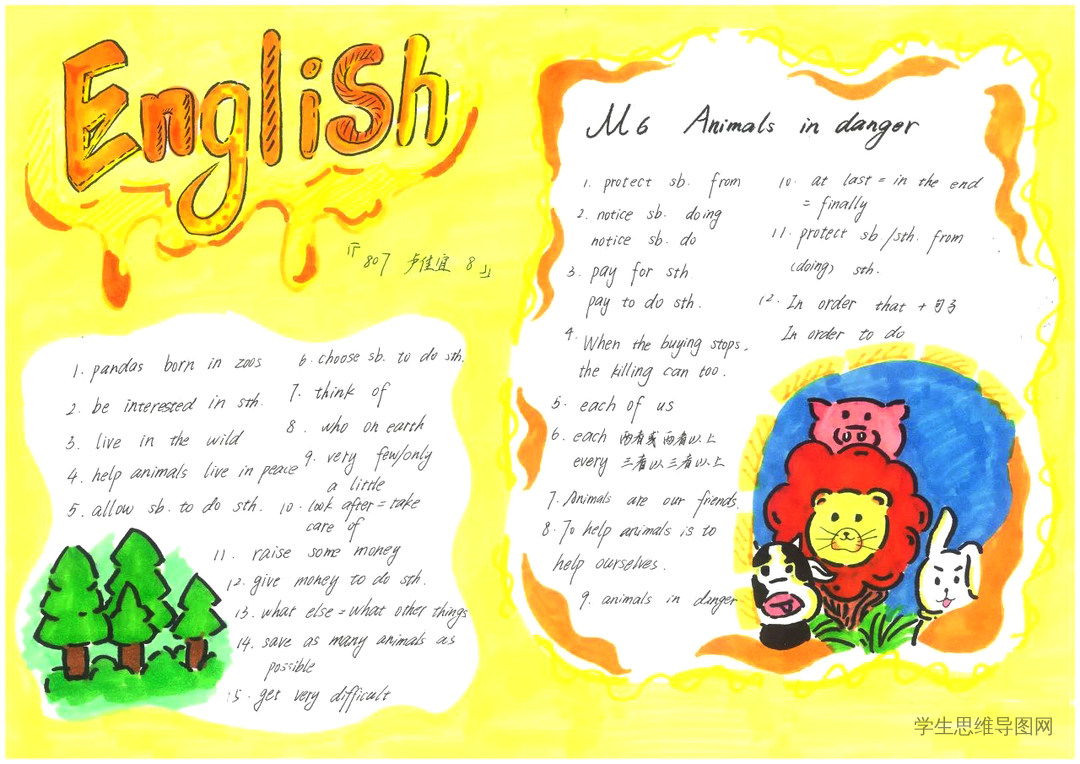 English
『807 卢佳宜 8』
1. pandas born in zoos
2. be interested in sth.
3. live in the wild
4. help animals live in peace
5. allow sb. to do sth.
6. choose sb. to do sth.
7. think of
8. who on earth
9. very few/only
a little
10. look after = take
care of
11. raise some money
12. give money to do sth.
13. what else = what other things
14. save as many animals as
possible
15. get very difficult
M6 Animals in danger
1. protect sb. from
2. notice sb. doing
notice sb. do
3. pay for sth
pay to do sth.
4. When the buying stops,
the killing can too.
5. each of us
6. each 两者或两者以上
every 三者以三者以上
7. Animals are our friends.
8. To help animals is to
help ourselves.
9. animals in danger
10. at last = in the end
= finally
11. protect sb./sth. from
(doing) sth.
12. In order that + 句子
In order to do
学生思维导图网